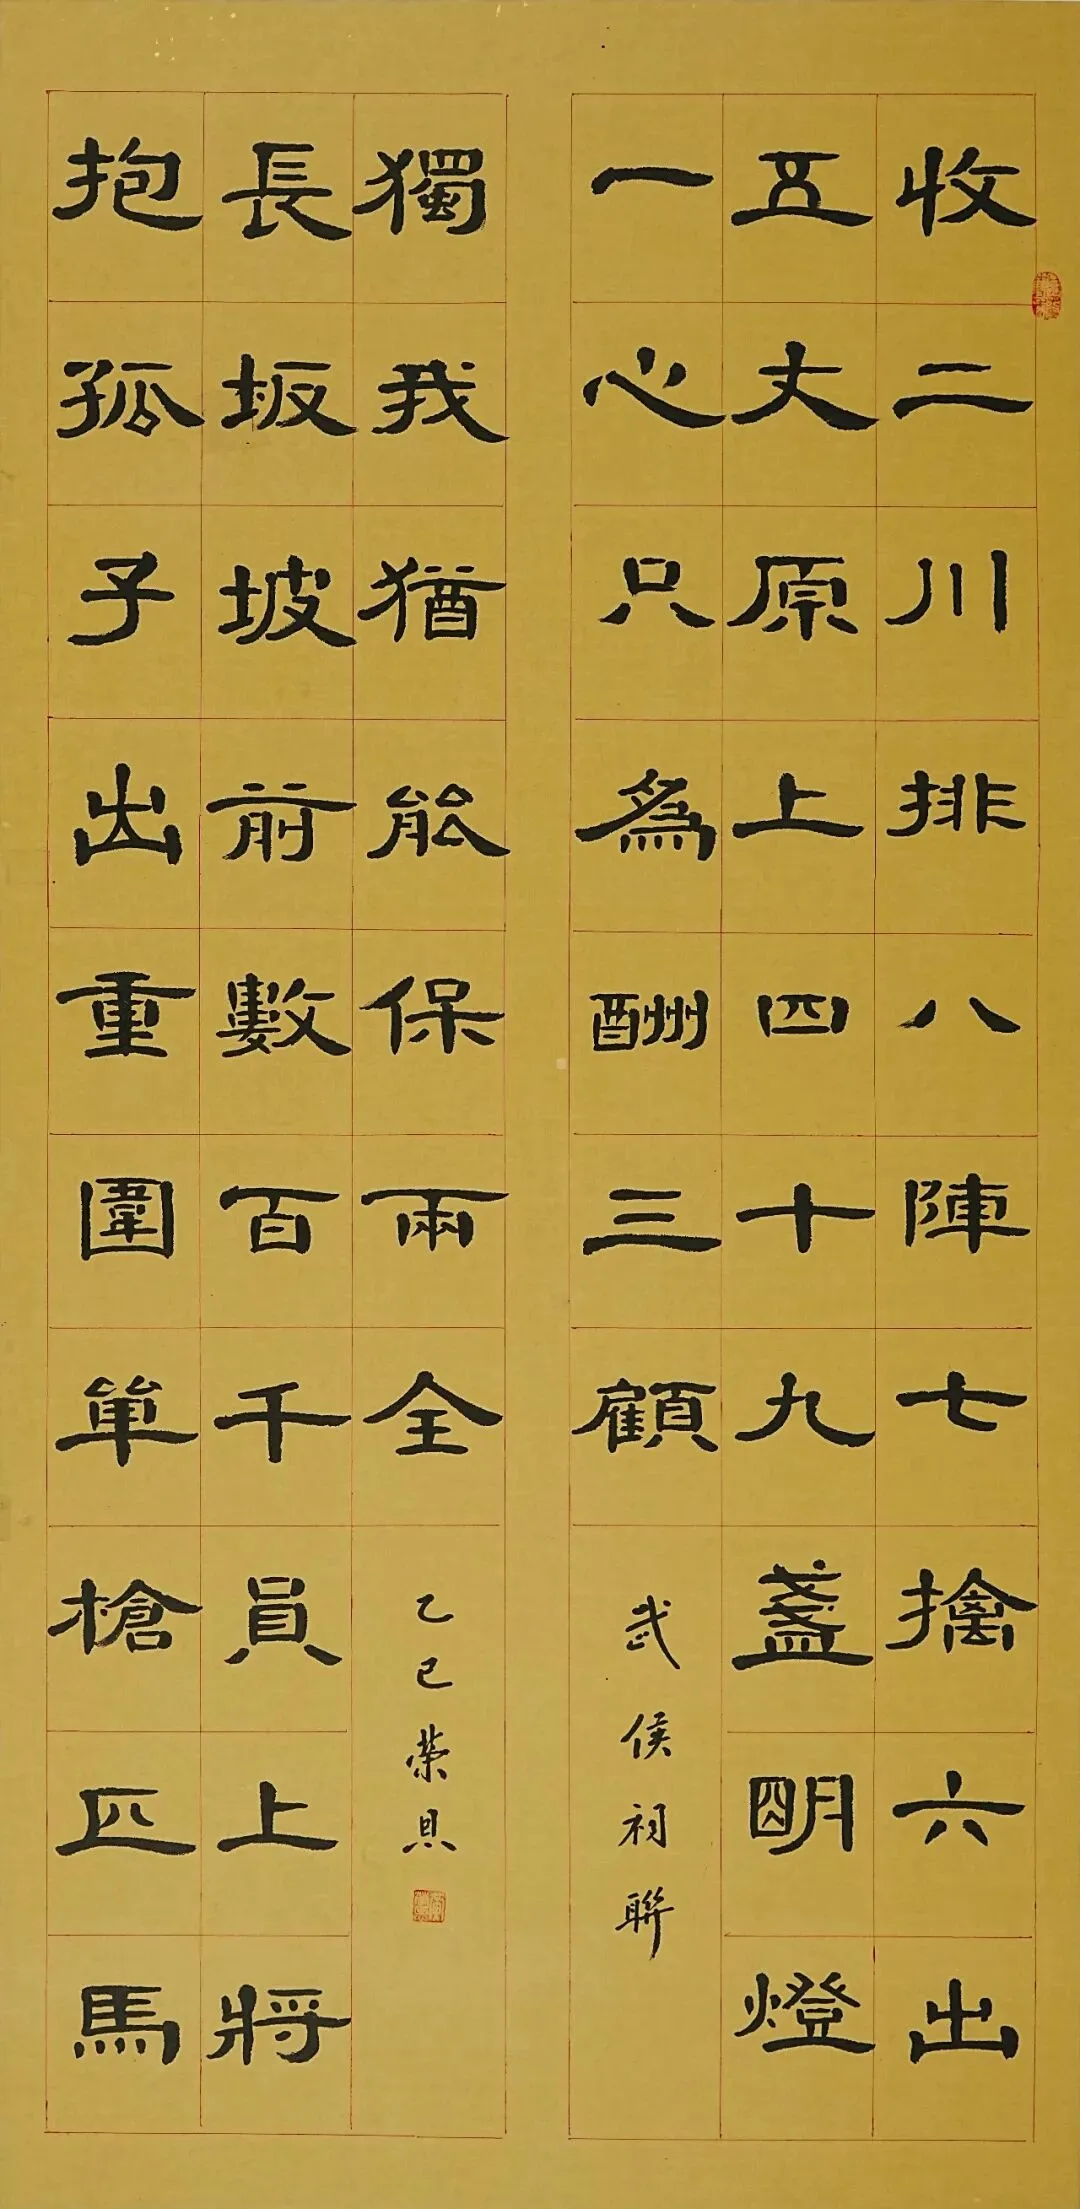 收二川排八陣七擒六出
五丈原上四十九盞明燈
一心只爲酬三顧
武侯祠聯
抱孤子出重圍單槍匹馬
長坂坡前數百千員上將
獨我猶能保兩全
乙巳榮具